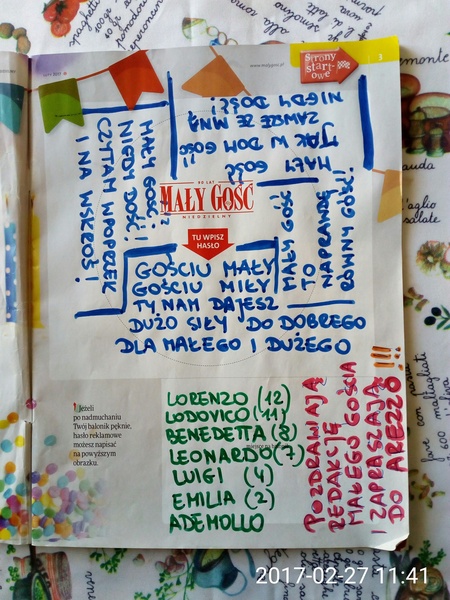 www.malygosc.pl
Strony
start-
owe
3
MAŁY GOŚĆ
JAK W DOM GOŚĆ
ZAWSZE ZE MNĄ
NIGDY DOŚĆ!
MAŁY GOŚĆ!
NIGDY DOŚĆ!
CZYTAM WKOPREK
I NA WSKROŚ!
90 LAT
MAŁY GOŚĆ
NIEDZIELNY
TU WPISZ
HASŁO
MAŁY GOŚĆ
TO
NAPRAWDĘ
RÓWNY GOŚĆ!
GOŚCIU MAŁY
GOŚCIU MIŁY
TY NAM DAJESZ
DUŻO SIŁY DO DOBREGO
DLA MAŁEGO I DUŻEGO
Jeżeli
po nadmuchaniu
Twój balonik pęknie,
hasło reklamowe
możesz napisać
na powyższym
obrazku.
LORENZO (12)
LODOVICO (11)
BENEDETTA (8)
LEONARDO (7)
LUIGI (4)
EMILIA (2)
ADEMOLLO
POZDRAWIAJĄ
REDAKCJĘ
MAŁEGO GOŚCIA
I ZAPRASZAJĄ
DO AREZZO!!!
2017-02-27 11:41